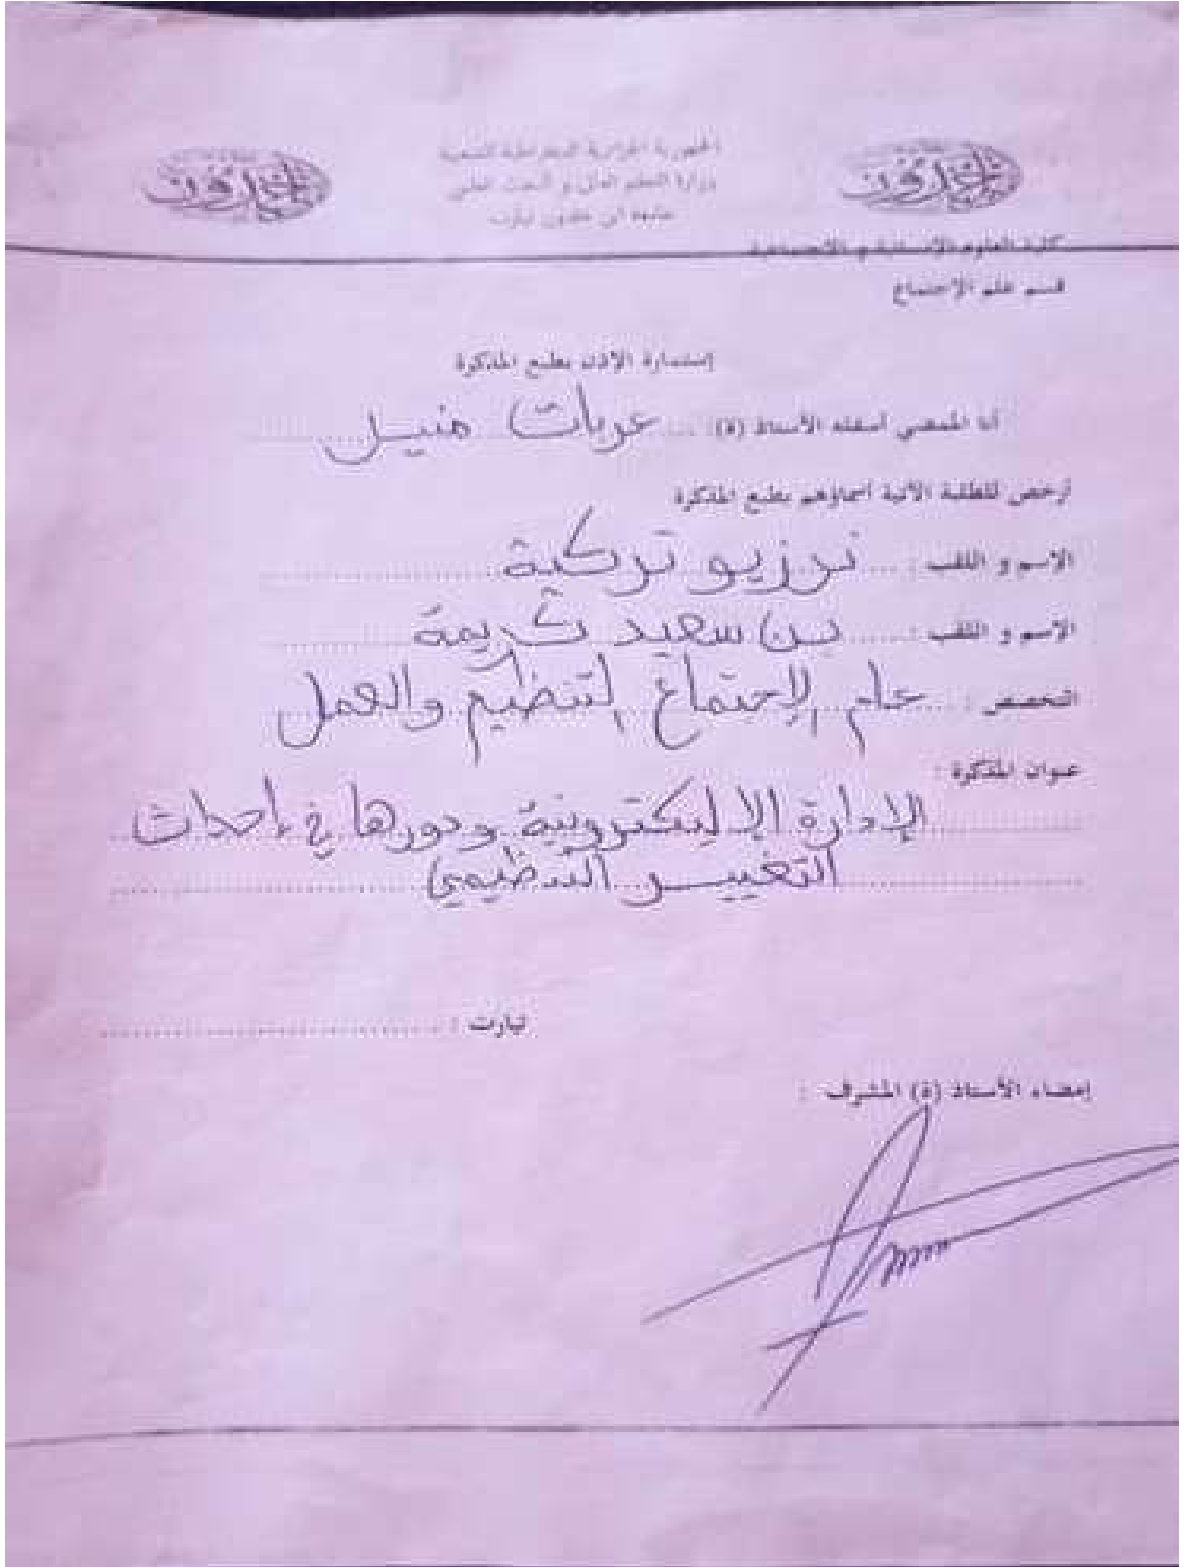 الجمهورية الجزائرية الديمقراطية الشعبية
وزارة التعليم العالي و البحث العلمي
جامعة ابن خلدون تيارت
كلية العلوم الإنسانية و الاجتماعية
قسم علم الإجتماع
إستمارة الإذن بطبع المذكرة
أنا الممضي أسفله الأستاذ (ة): عربات منيل
أرخص للطلبة الآتية أسماؤهم بطبع المذكرة
الاسم و اللقب : تركية
الاسم و اللقب : بن سعيد كريمة
التخصص : علم الإجتماع التنظيم والعمل
عنوان المذكرة :
الإدارة الإليكترونية ودورها في إحداث
التغيير التنظيمي
تيارت :
إمضاء الأستاذ (ة) المشرف :